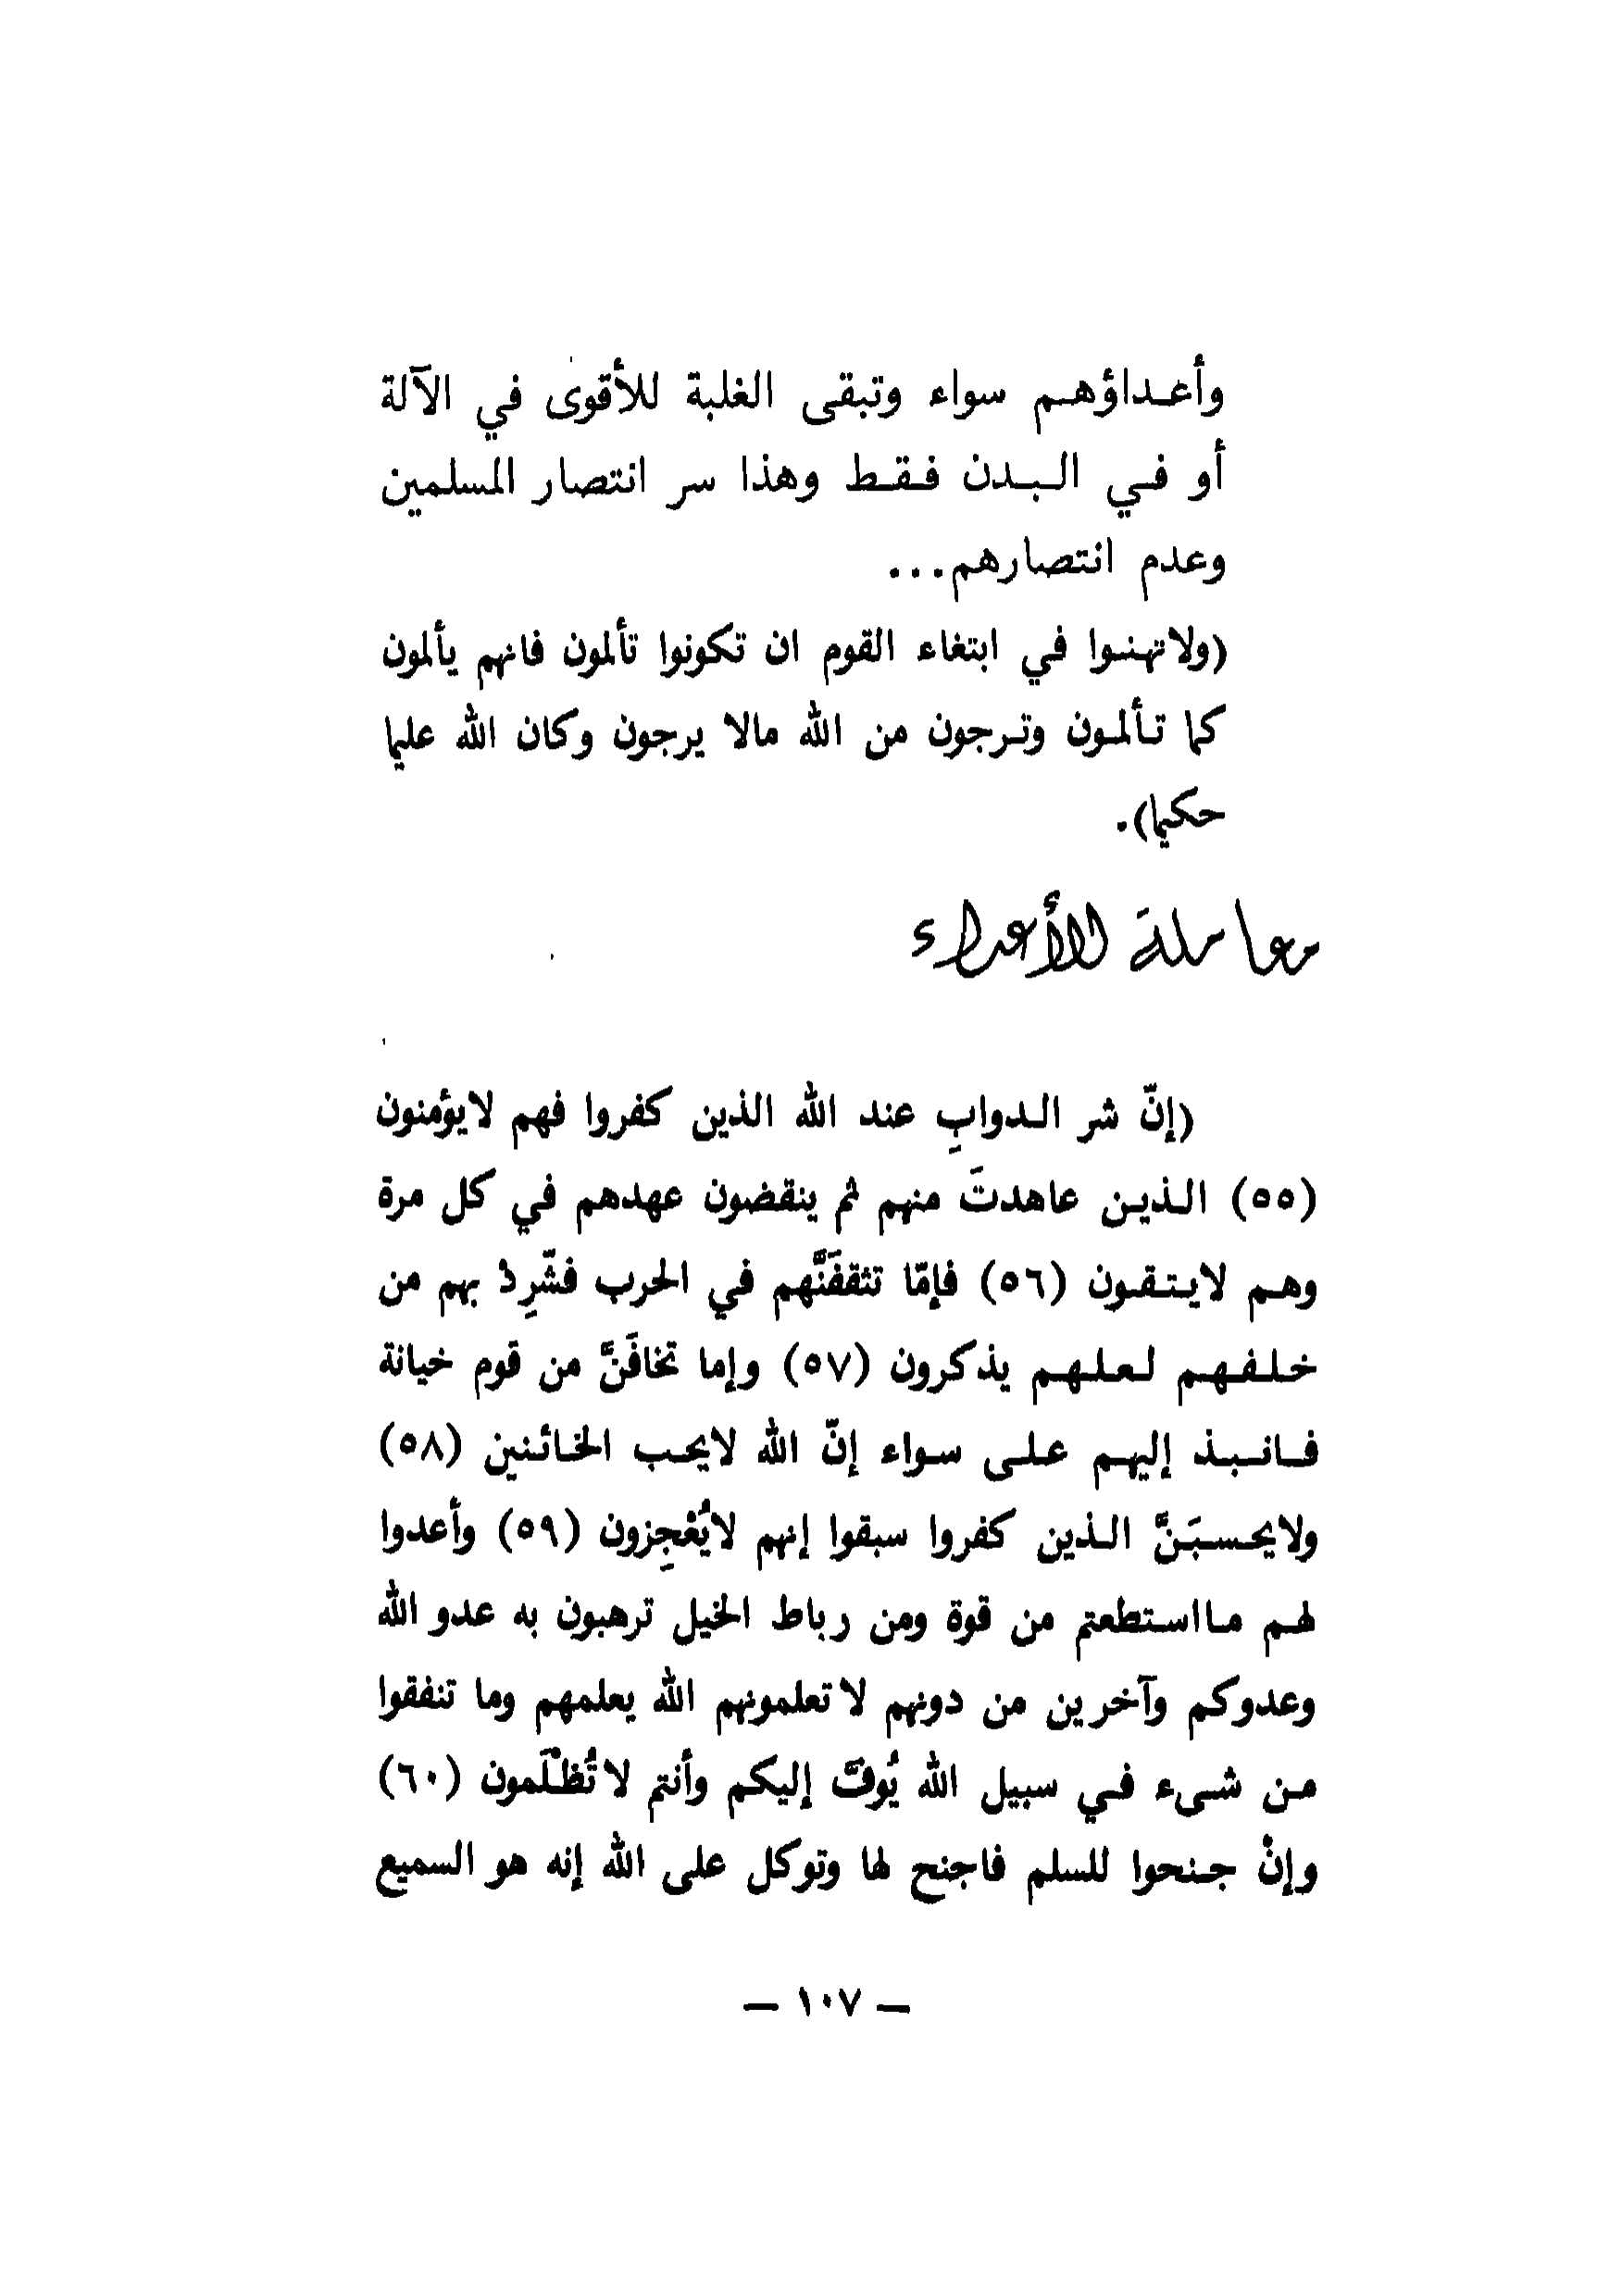 وأعداؤهم سواء وتبقى الغلبة للأقوى في الآلة
أو في البدن فقط وهذا سر انتصار المسلمين
وعدم انتصارهم...
(ولاتهنوا في ابتغاء القوم ان تكونوا تألمون فانهم يألمون
كما تألمون وترجون من الله مالا يرجون وكان الله عليما
حكيما).
معاملة الأعداء
(إنّ شر الدوابِ عند الله الذين كفروا فهم لايؤمنون
(٥٥) الذين عاهدتَ منهم ثم ينقضون عهدهم في كل مرة
وهم لايتقون (٥٦) فإمّا تثقفَنَّهم في الحرب فشّرِدْ بهم من
خلفهم لعلهم يذكرون (٥٧) وإما تخافَنَّ من قوم خيانة
فانبذ إليهم على سواء إنّ الله لايحب الخائنين (٥٨)
ولايحسبَنَّ الذين كفروا سبقوا إنهم لايُعْجِزون (٥٩) وأعدوا
لهم مااستطعتم من قوة ومن رباط الخيل ترهبون به عدو الله
وعدوكم وآخرين من دونهم لاتعلمونهم الله يعلمهم وما تنفقوا
من شىء في سبيل الله يُوفَّ إليكم وأنتم لاتُظْلَمون (٦٠)
وإنْ جنحوا للسلم فاجنح لها وتوكل على الله إنه هو السميع
— ١٠٧ —